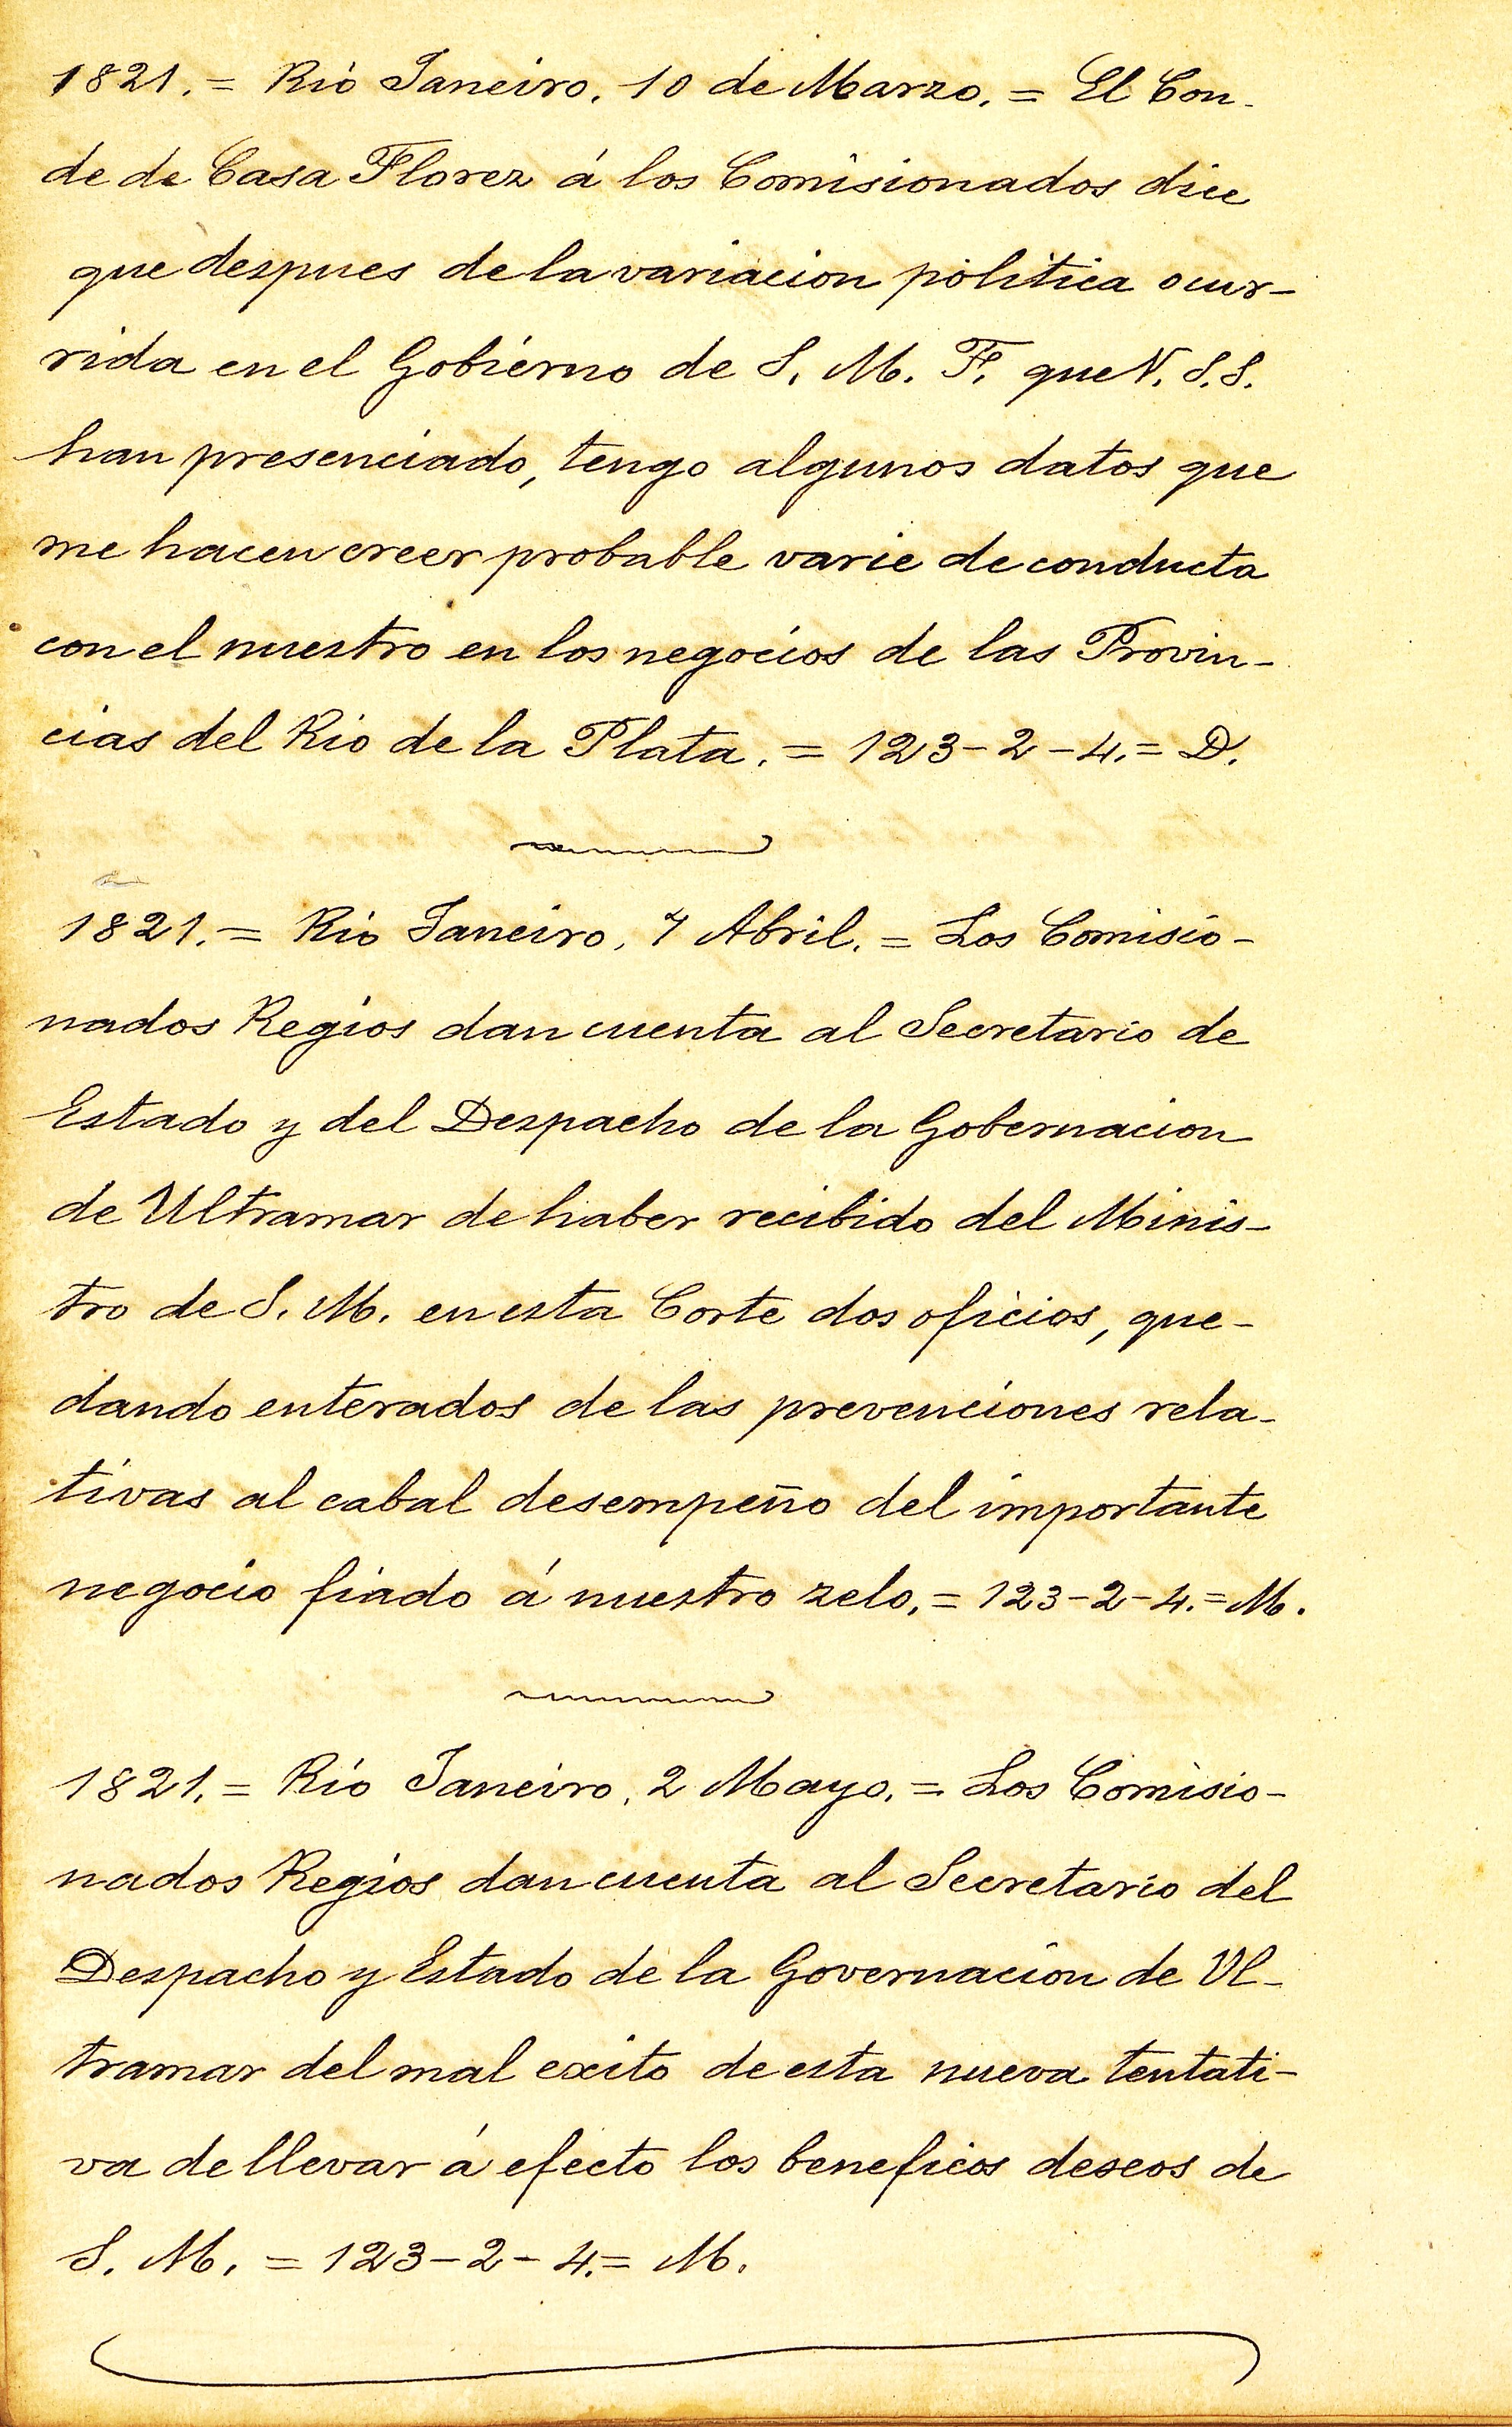 1821. = Rio Janeiro. 10 de Marzo. = El Con-
de de Casa Florez á los Comisionados dice
que despues de la variacion politica ocur-
rida en el Gobierno de S. M. F. que V. S.S.
han presenciado, tengo algunos datos que
me hacen creer probable varie de conducta
con el nuestro en los negocios de las Provin-
cias del Rio de la Plata. = 123-2-4. = D.
1821. = Rio Janeiro, 7 Abril. = Los Comisio-
nados Regios dan cuenta al Secretario de
Estado y del Despacho de la Gobernacion
de Ultramar de haber recibido del Minis-
tro de S. M. en esta Corte dos oficios, que-
dando enterados de las prevenciones rela-
tivas al cabal desempeño del importante
negocio fiado á nuestro zelo. = 123-2-4. = M.
1821. = Rio Janeiro, 2 Mayo. = Los Comisio-
nados Regios dan cuenta al Secretario del
Despacho y Estado de la Governacion de Ul-
tramar del mal exito de esta nueva tentati-
va de llevar á efecto los beneficos deseos de
S. M. = 123-2-4. = M.